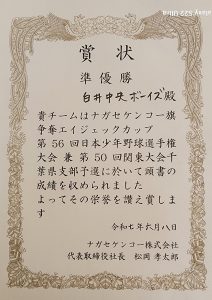 賞状
準優勝
白井中央ボーイズ殿
貴チームはナガセケンコー旗
争奪エイジェックカップ
第56回日本少年野球選手権
大会兼第50回関東大会千
葉県支部予選に於いて頭書の
成績を収められました
よってその栄誉を讃え賞しま
す
令和七年六月八日
ナガセケンコー株式会社
代表取締役社長 松岡孝太郎